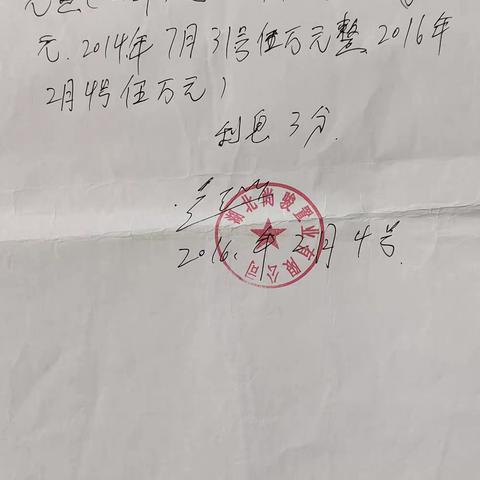 元整
元.2014年7月31号伍万元整 2016年
2月4号伍万元)
利息 3分.
湖北尚骏置业有限公司
2016.年2月4号.